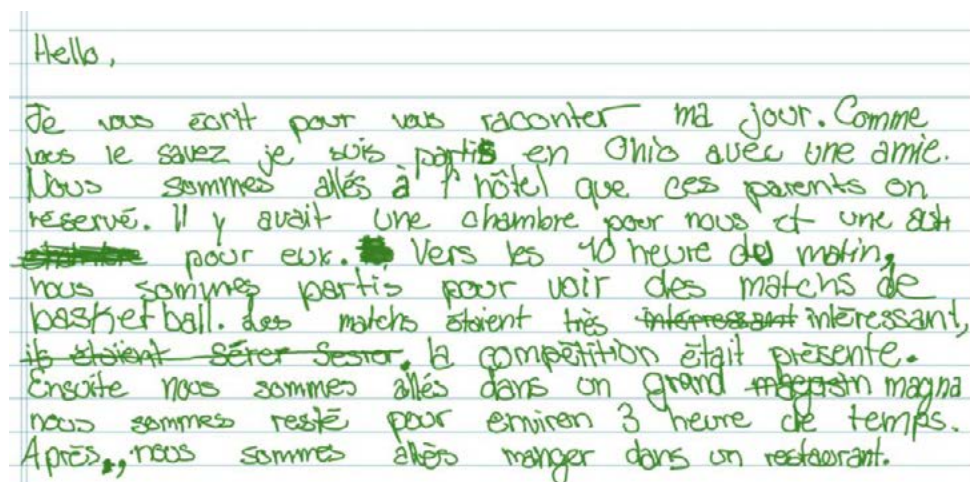 Hello,
Je vous écrit pour vous raconter ma jour. Comme
vous le savez je suis partis en Ohio avec une amie.
Nous sommes allés à l'hôtel que ces parents on
réservé. Il y avait une chambre pour nous et une
pour eux. Vers les 10 heure du matin,
nous sommes partis pour voir des matchs de
basketball. Les matchs étaient très interressant intéressant,
ils étaient la compétition était présente.
Ensuite nous sommes allés dans un grand magasin magna
nous sommes resté pour emiren 3 heure de temps.
Après, nous sommes allés manger dans un restaurant.